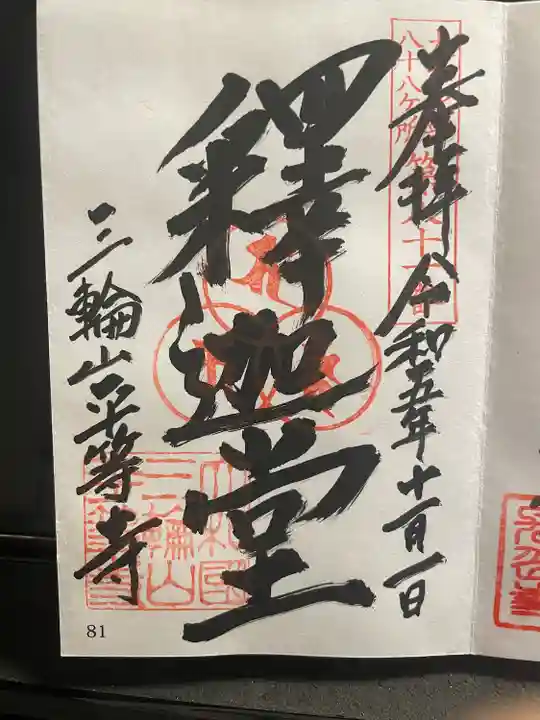 奉拝 令和五年十一月一日
釋迦堂
三輪山平等寺
八十八ヶ所
81